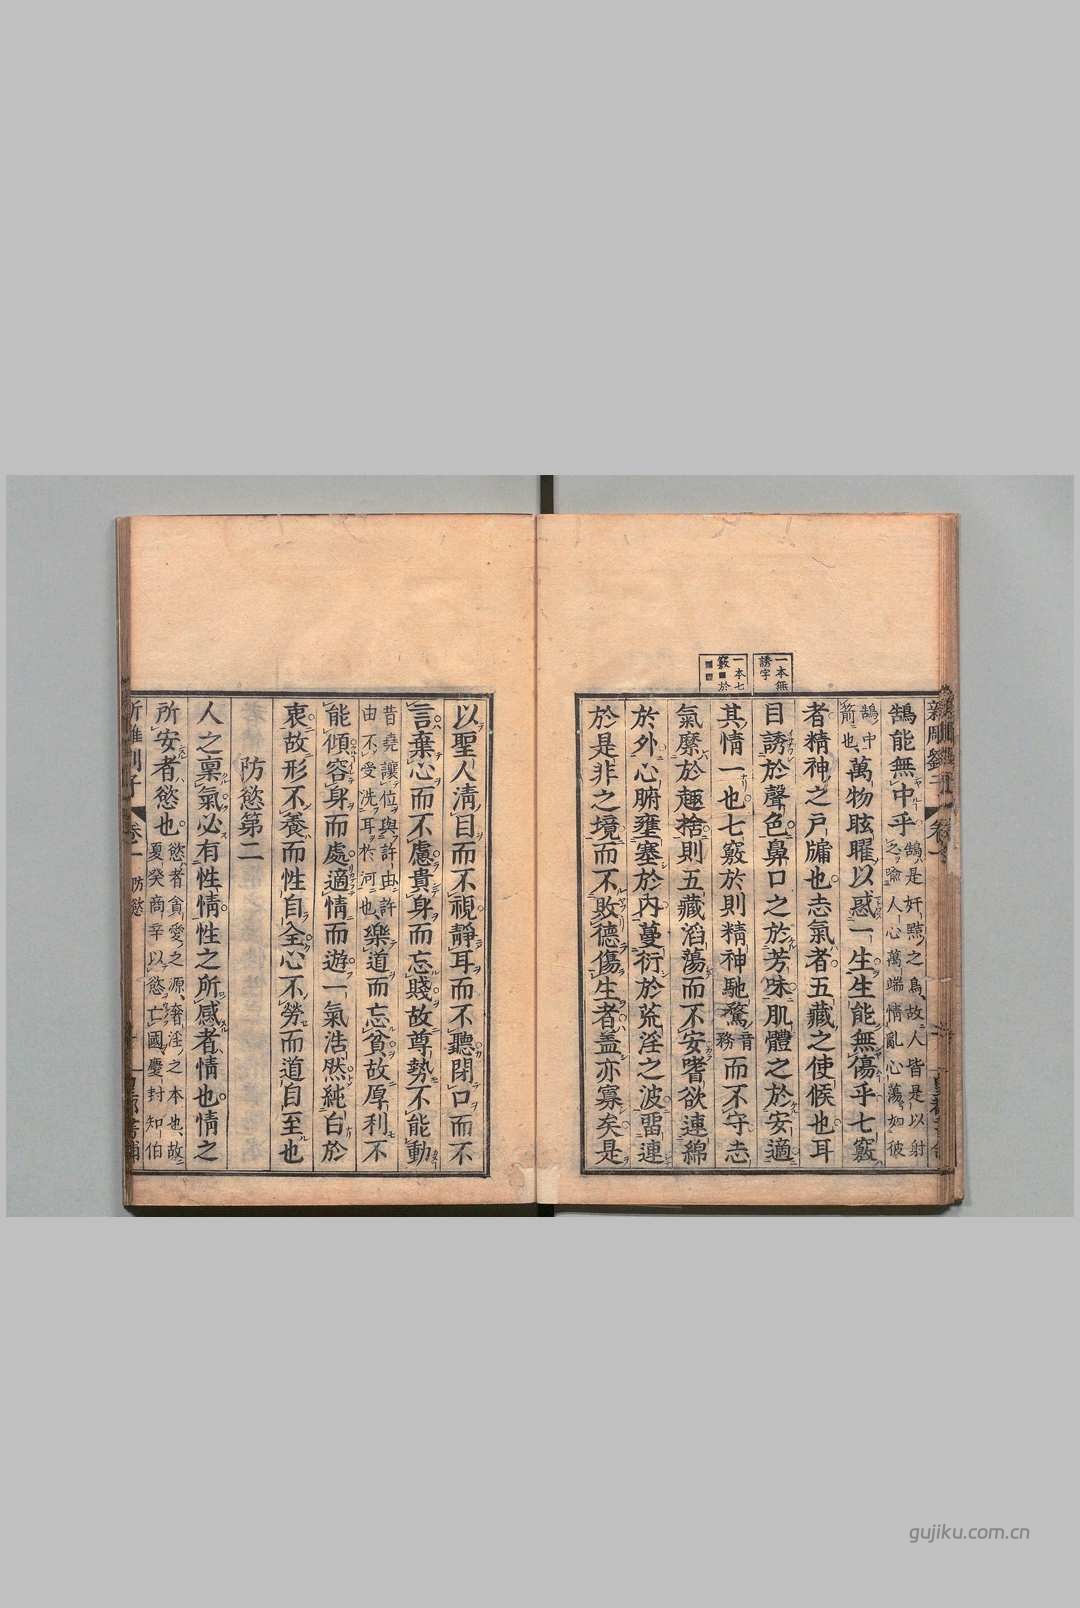 一本無
誘字
一本七
竅 於
鵠能無中乎鵠是奸黠之鳥故人皆是以射之喻人心萬端情亂心蕩如彼
鵠中箭也萬物眩曜以惑一生生能無傷乎七竅
者精神之戶牖也志氣者五藏之使候也耳
目誘於聲色鼻口之於芳味肌體之於安適
其情一也七竅於則精神馳騖音務而不守志
氣縻於趣捨則五藏滔蕩而不安嗜欲連綿
於外心腑壅塞於內蔓衍於荒淫之波留連
於是非之境而不敗德傷生者盖亦寡矣是
以聖人清目而不視靜耳而不聽閉口而不
言棄心而不慮貴身而忘賤故尊勢不能動
昔堯讓位與許由許由不受洗耳於河也樂道而忘貧故厚利不
能傾容身而處適情而遊一氣浩然純白於
衷故形不養而性自全心不勞而道自至也
防慾第二
人之稟氣必有性情性之所感者情也情之
所安者慾也慾者貪愛之源奢淫之本也故夏癸商辛以慾亡國慶封知伯
卷一 防慾